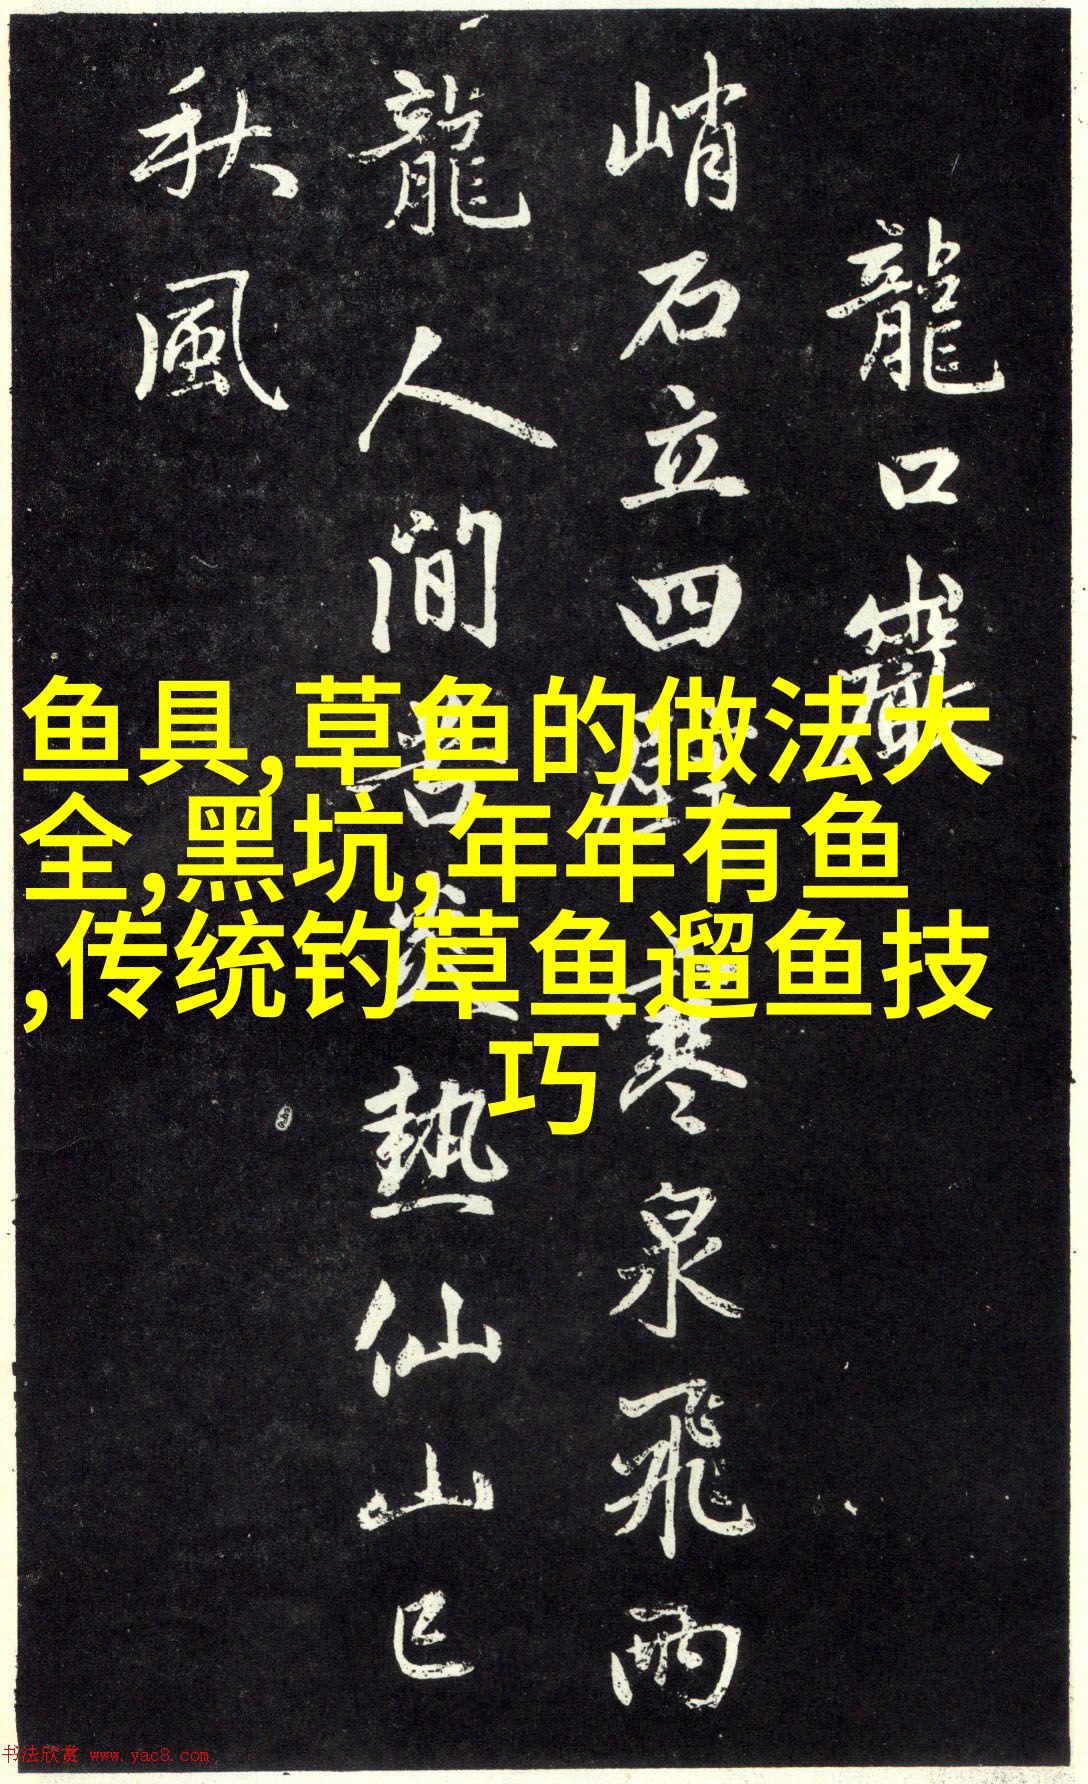 龍口巖
峭石立四壁寒泉飛雨
龍人間苦炎熱仙山已
秋風
鱼具,草鱼的做法大
全,黑坑,年年有鱼
,传统钓草鱼遛鱼技
巧
书法欣赏 www.yac8.com